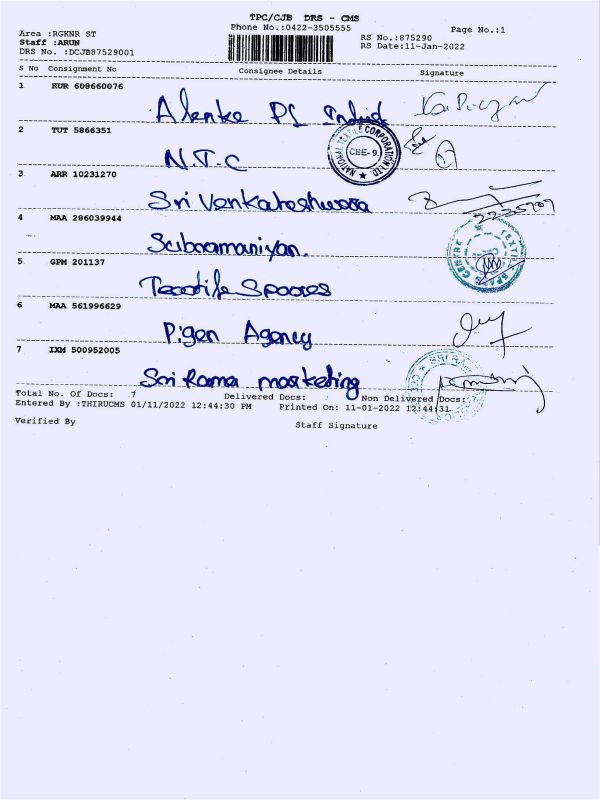 TPC/CJB DRS - CMS
Phone No.:0422-3505555
Page No.:1
Area :RGKNR ST
Staff :ARUN
DRS No. :DCJB87529001
RS No.:875290
RS Date:11-Jan-2022
S No Consignment No Consignee Details Signature
1 RUR 608660076
Alenke PL Indust
2 TUT 5866351
N.T.C
NATIONAL TEXTILE CORPORATION LTD.
CBE-9.
3 ARR 10231270
Sri Venkateshwara
4 MAA 286039944
Subramaniyan.
5 GPM 201137
Textile Spares
TEXTILE SPARES CENTRE
6 MAA 561996629
Pigen Agency
7 IXM 500952005
Sri Rama marketing
SRI RAM
Total No. Of Docs: 7 Delivered Docs: Non Delivered Docs:
Entered By :THIRUCMS 01/11/2022 12:44:30 PM Printed On: 11-01-2022 12:44:31
Verified By Staff Signature